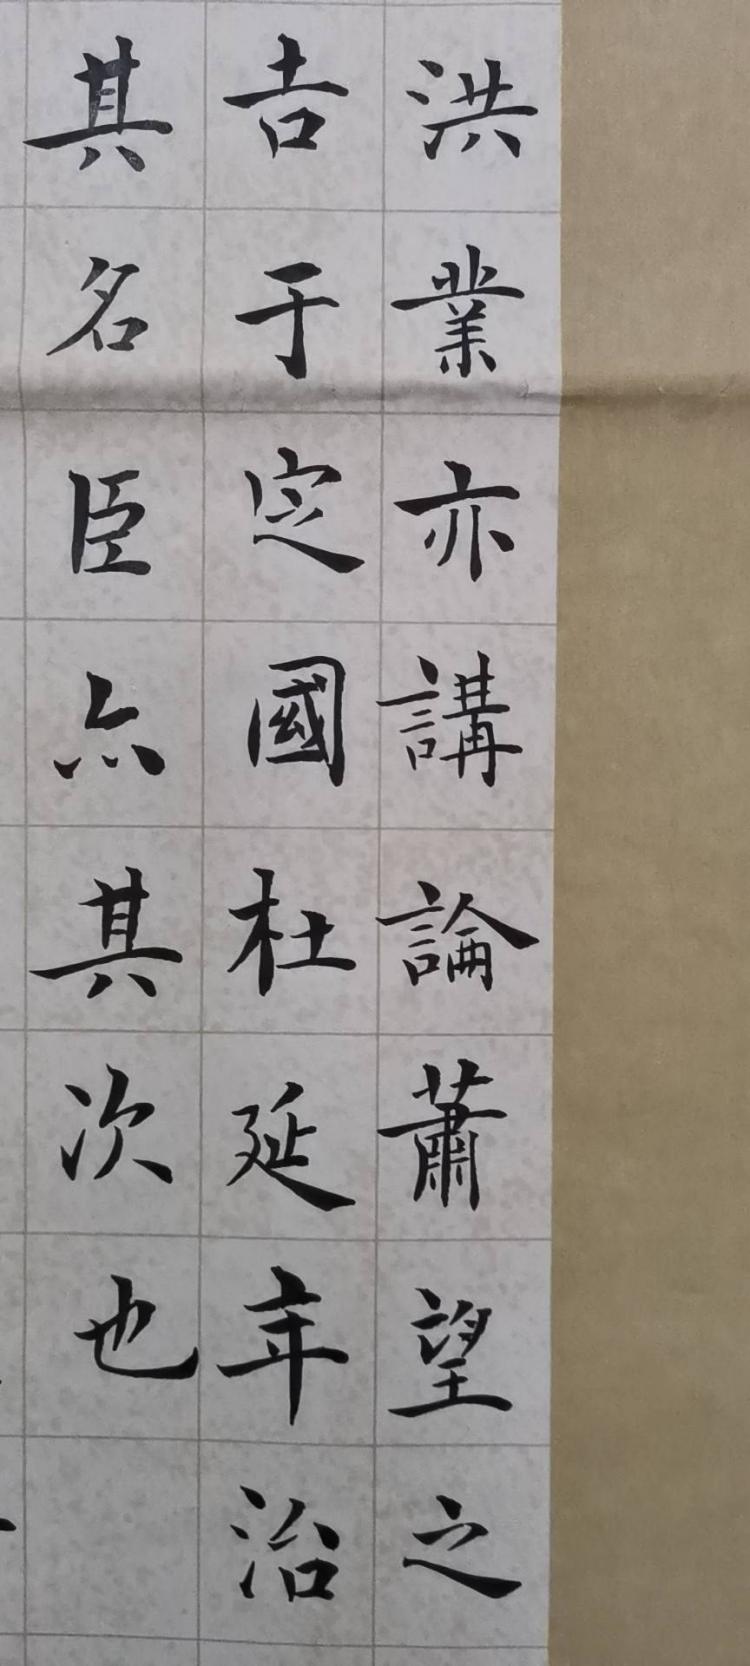 洪業亦講論蕭望之
吉于定國杜延年治
其名臣亦其次也